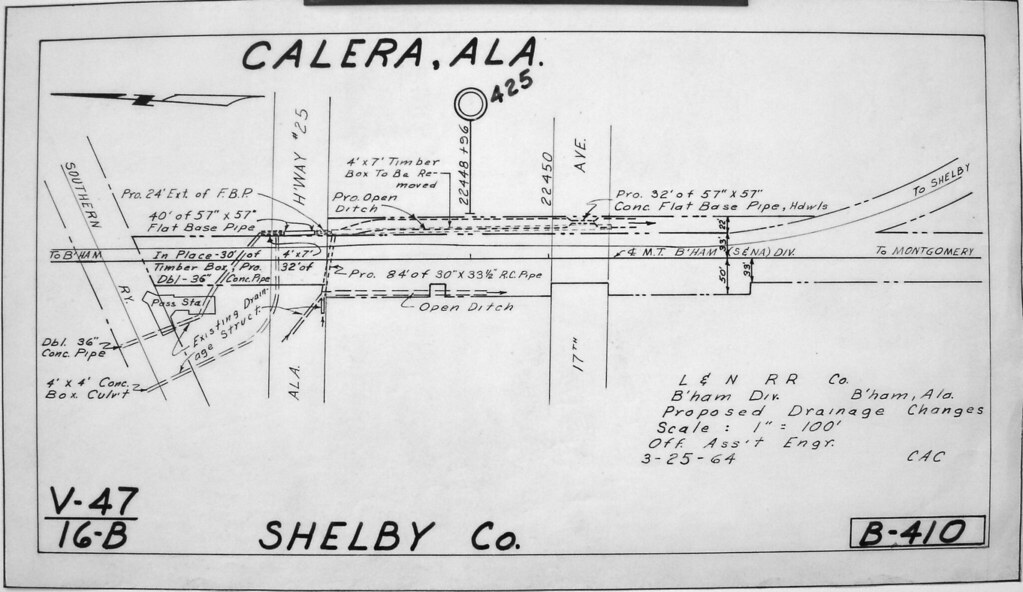 CALERA, ALA.
425
H'WAY #25
22448 + 96
22450
AVE.
SOUTHERN
RY.
4' x 7' Timber
Box To Be Re-
moved
Pro. 24' Ext. of F.B.P.
Pro. Open
Ditch
Pro. 32' of 57" X 57"
Conc. Flat Base Pipe, Hdwls
TO SHELBY
40' of 57" X 57"
Flat Base Pipe
22'
33'
TO B'HAM
In Place - 30' of 4' x 7'
Timber Box, Pro. 32' of
Dbl - 36" Conc. Pipe
℄ M.T. B'HAM (S&NA) DIV.
TO MONTGOMERY
Pro. 84' of 30" X 33½" R.C. Pipe
50'
33'
Pass Sta.
Open Ditch
Existing Drain-
age Struct.
Dbl. 36"
Conc. Pipe
4' x 4' Conc.
Box Culv't
ALA.
17TH
L & N R R Co.
B'ham Div. B'ham, Ala.
Proposed Drainage Changes
Scale : 1" = 100'
Off. Ass't Engr.
3-25-64 CAC
V-47
16-B
SHELBY Co.
B-410